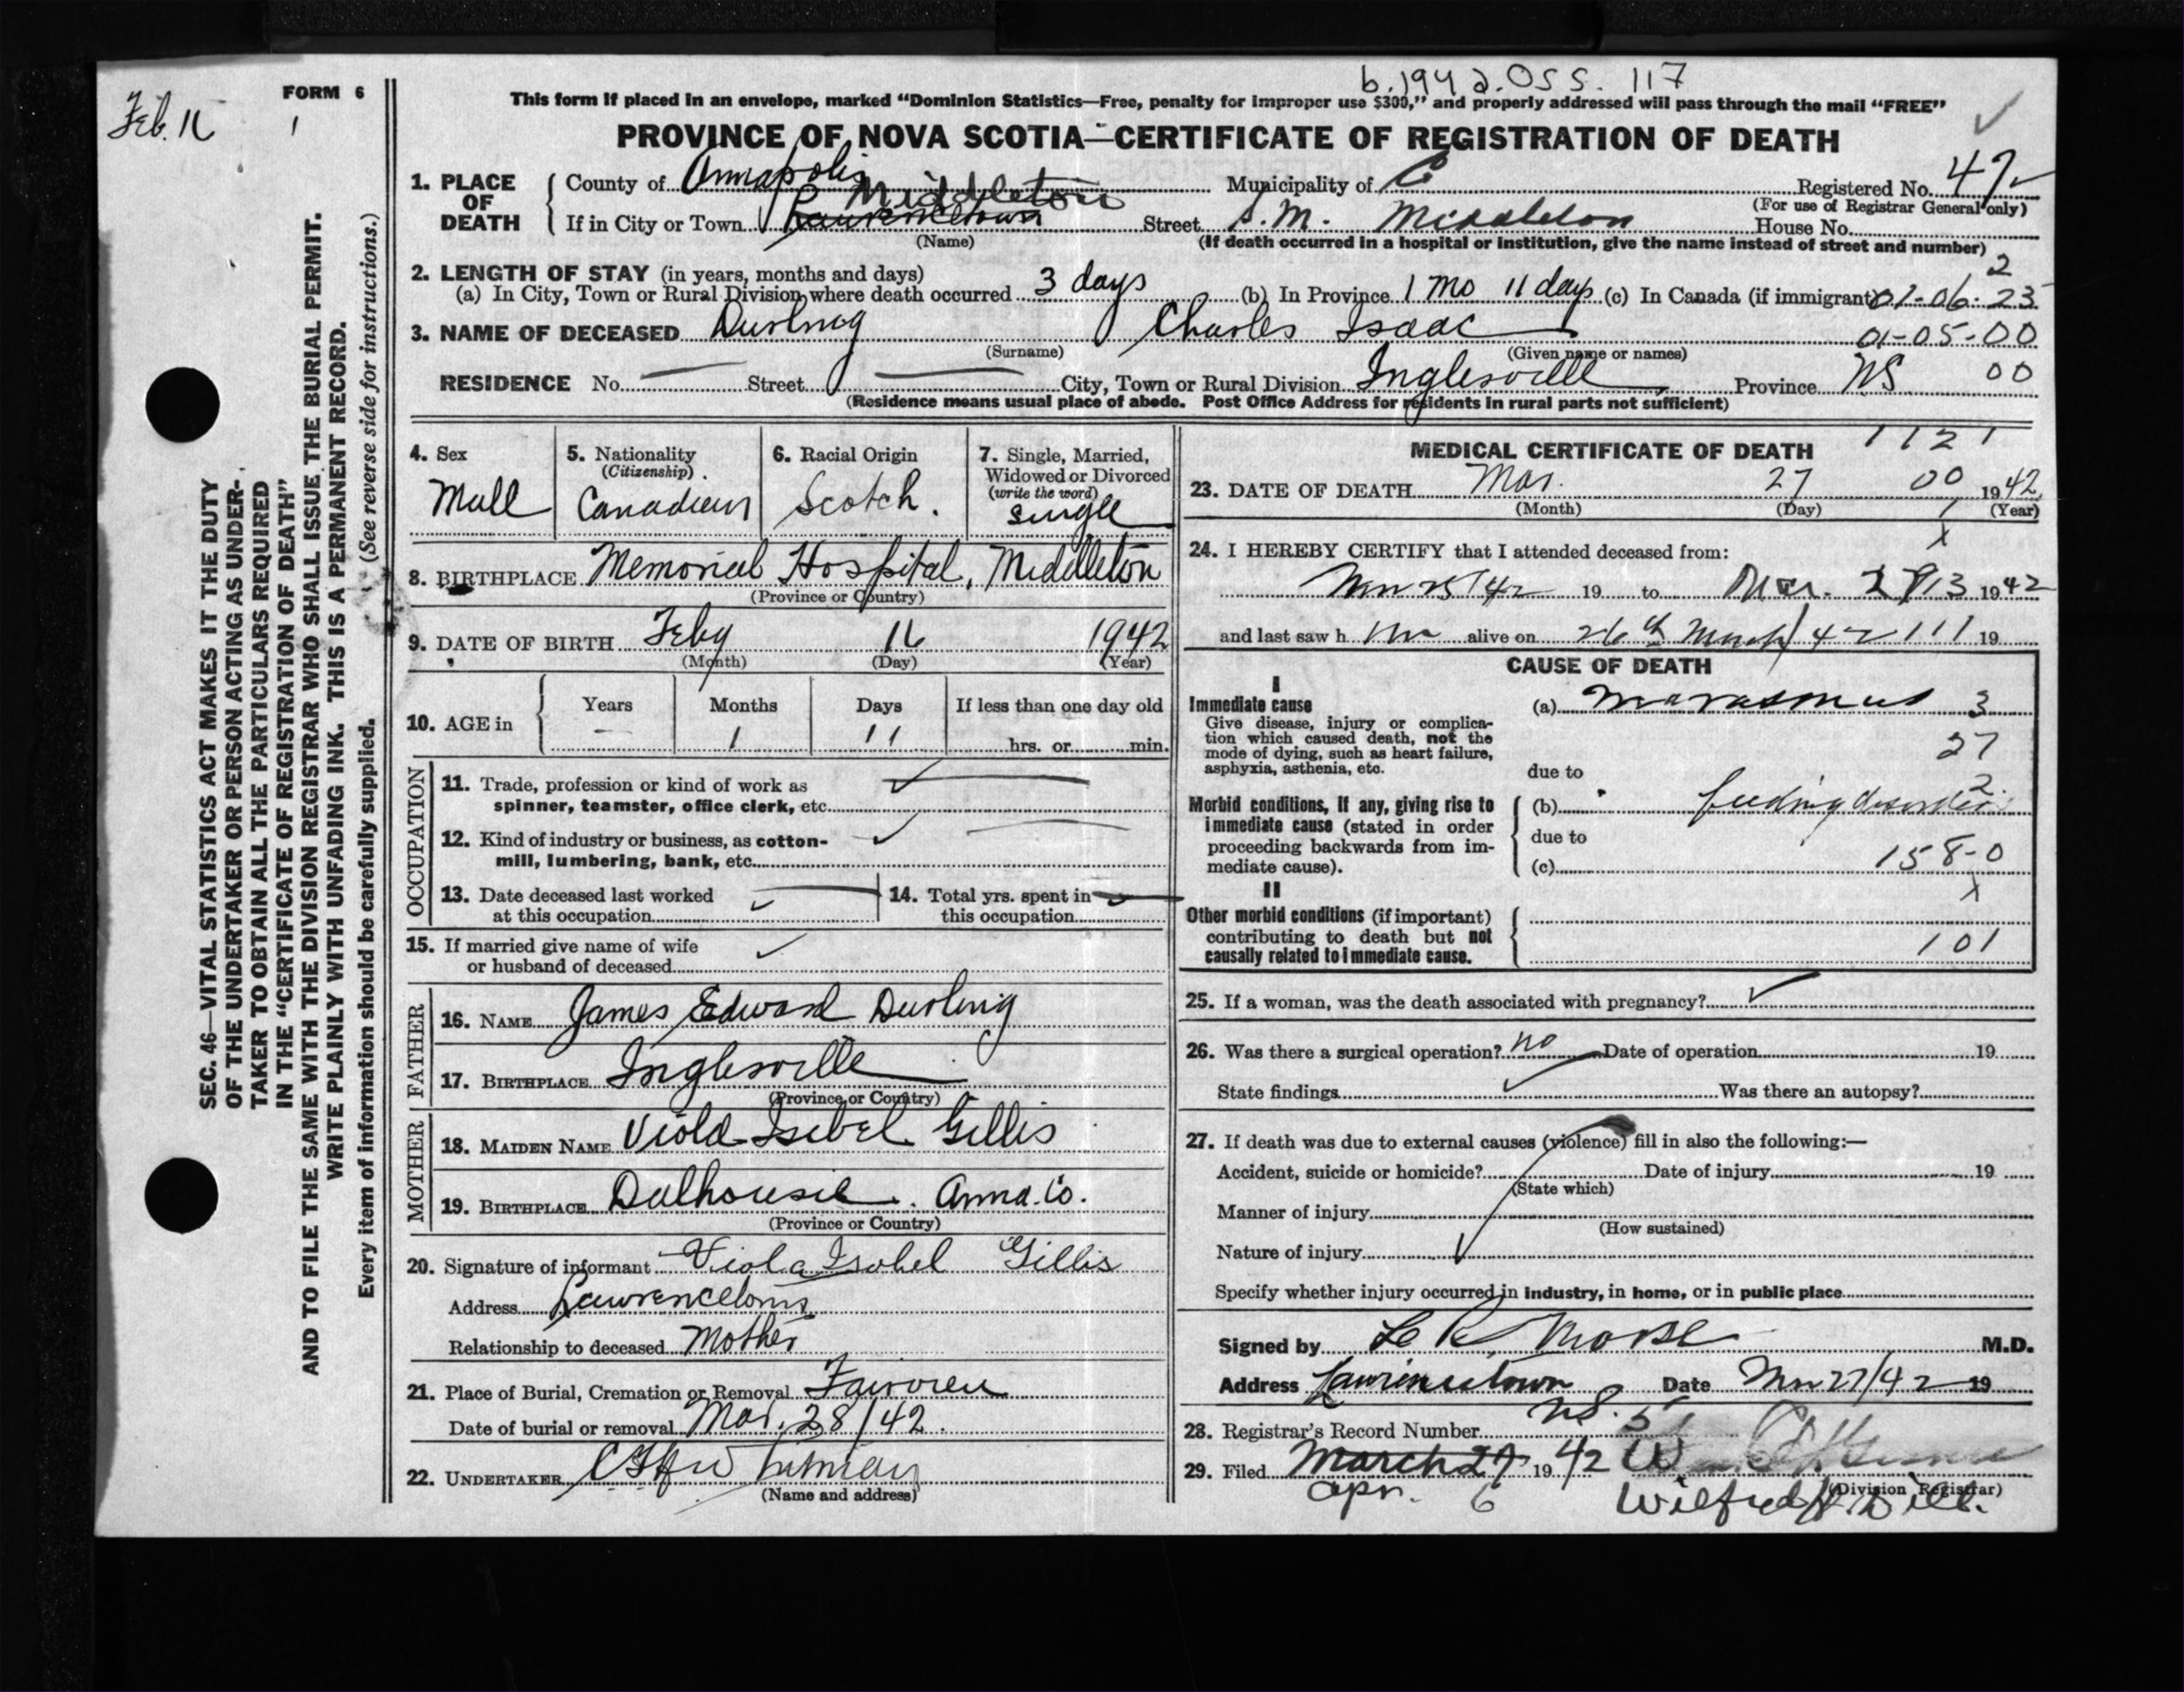 Feb. 16
FORM 6
1
b. 1942. 055. 117
This form if placed in an envelope, marked "Dominion Statistics—Free, penalty for improper use $300," and properly addressed will pass through the mail "FREE"
PROVINCE OF NOVA SCOTIA—CERTIFICATE OF REGISTRATION OF DEATH
1. PLACE OF DEATH
County of Annapolis Municipality of C Registered No. 47
(For use of Registrar General only)
Middleton
If in City or Town Lawrencetown Street S. M. Middleton House No.
(Name) (If death occurred in a hospital or institution, give the name instead of street and number)
2. LENGTH OF STAY (in years, months and days) 2
(a) In City, Town or Rural Division where death occurred 3 days (b) In Province 1 mo 11 days (c) In Canada (if immigrant) 01-06-23
3. NAME OF DECEASED Durling Charles Isaac 01-05-00
(Surname) (Given name or names)
RESIDENCE No. — Street — City, Town or Rural Division Inglesville Province NS 00
(Residence means usual place of abode. Post Office Address for residents in rural parts not sufficient)
SEC. 46—VITAL STATISTICS ACT MAKES IT THE DUTY
OF THE UNDERTAKER OR PERSON ACTING AS UNDER-
TAKER TO OBTAIN ALL THE PARTICULARS REQUIRED
IN THE "CERTIFICATE OF REGISTRATION OF DEATH"
AND TO FILE THE SAME WITH THE DIVISION REGISTRAR WHO SHALL ISSUE THE BURIAL PERMIT.
WRITE PLAINLY WITH UNFADING INK. THIS IS A PERMANENT RECORD.
Every item of information should be carefully supplied. (See reverse side for instructions.)
4. Sex 5. Nationality (Citizenship) 6. Racial Origin 7. Single, Married, Widowed or Divorced (write the word)
Mall Canadian Scotch. Single
8. BIRTHPLACE Memorial Hospital, Middleton
(Province or Country)
9. DATE OF BIRTH Feby 16 1942
(Month) (Day) (Year)
10. AGE in Years Months Days If less than one day old
— 1 11 hrs. or min.
OCCUPATION
11. Trade, profession or kind of work as
spinner, teamster, office clerk, etc.
12. Kind of industry or business, as cotton-
mill, lumbering, bank, etc.
13. Date deceased last worked
at this occupation
14. Total yrs. spent in
this occupation
15. If married give name of wife
or husband of deceased
FATHER
16. NAME James Edward Durling
17. BIRTHPLACE Inglesville
(Province or Country)
MOTHER
18. MAIDEN NAME Viola Isebel Gillis
19. BIRTHPLACE Dalhousie. Anna. Co.
(Province or Country)
20. Signature of informant Viola Isobel Gillis
Address Lawrencetown
Relationship to deceased Mother
21. Place of Burial, Cremation or Removal Fairview
Date of burial or removal Mar. 28/42.
22. UNDERTAKER
(Name and address)
1121
MEDICAL CERTIFICATE OF DEATH
23. DATE OF DEATH Mar. 27 00 1942
(Month) (Day) (Year)
1
X
24. I HEREBY CERTIFY that I attended deceased from:
42 19 to Mar. 1942
and last saw h im alive on 26th March/42 111 19
CAUSE OF DEATH
I
Immediate cause
Give disease, injury or complica-
tion which caused death, not the
mode of dying, such as heart failure,
asphyxia, asthenia, etc.
(a) Marasmus 3
27
due to
2
Morbid conditions, if any, giving rise to
immediate cause (stated in order
proceeding backwards from im-
mediate cause).
(b) feeding disorder
due to
(c) 158-0
X
II
Other morbid conditions (if important)
contributing to death but not
causally related to immediate cause.
101
25. If a woman, was the death associated with pregnancy?
26. Was there a surgical operation? no Date of operation 19
State findings Was there an autopsy?
27. If death was due to external causes (violence) fill in also the following:—
Accident, suicide or homicide? Date of injury 19
(State which)
Manner of injury
(How sustained)
Nature of injury
Specify whether injury occurred in industry, in home, or in public place
Signed by Morse M.D.
Address Lawrencetown Date 27/42 19
NS.
28. Registrar's Record Number
29. Filed March 27 1942
(Division Registrar)
Apr. 6 Wilfred H. Dill.